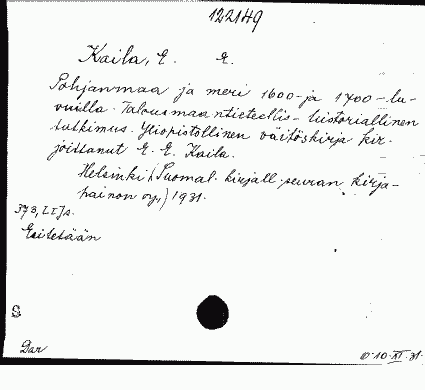 122149
Kaila, E. E.
Pohjanmaa ja meri 1600- ja 1700-lu-
vuilla. Talousmaantieteellis-historiallinen
tutkimus. Yliopistollinen väitöskirja kir-
joittanut E. E. Kaila.
Helsinki (Suomal. kirjall. seuran kirja-
painon oy,) 1931.
373, LIJs.
Esitetään
S
Dar
10.XI.31.